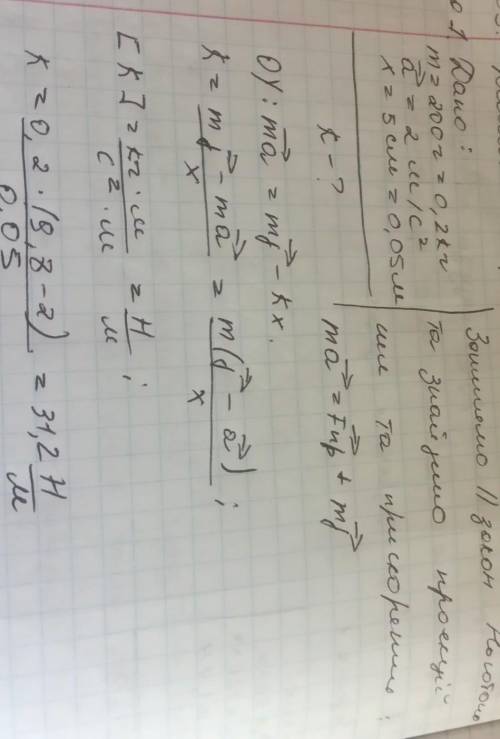 №1. Дано:
m = 200г = 0,2кг
a⃗ = 2 м/с²
x = 5см = 0,05м
k - ?
Запишемо II закон Ньютона
та знайдемо проекції
сил та прискорення:
ma⃗ = Fпр⃗ + mg⃗
OY: ma⃗ = mg⃗ - kx.
k = mg⃗ - ma⃗ / x = m(g⃗ - a⃗) / x ;
[k] = кг·м / с²·м = Н / м ;
k = 0,2·(9,8-2) / 0,05 = 31,2 Н / м